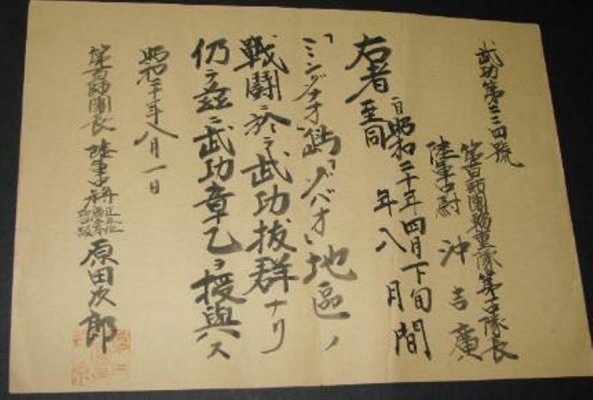 武功第三四號
第百師團輜重隊第中隊長
陸軍中尉 沖吉廣
自昭和二十年四月下旬
至同年八月間
右者
「ミンダナオ」島「ダバオ」地區ノ
戰闘ニ於テ武功抜群ナリ
仍テ茲ニ武功章乙ヲ授與ス
昭和二十年八月一日
第百師團長 陸軍中將 原田次郎